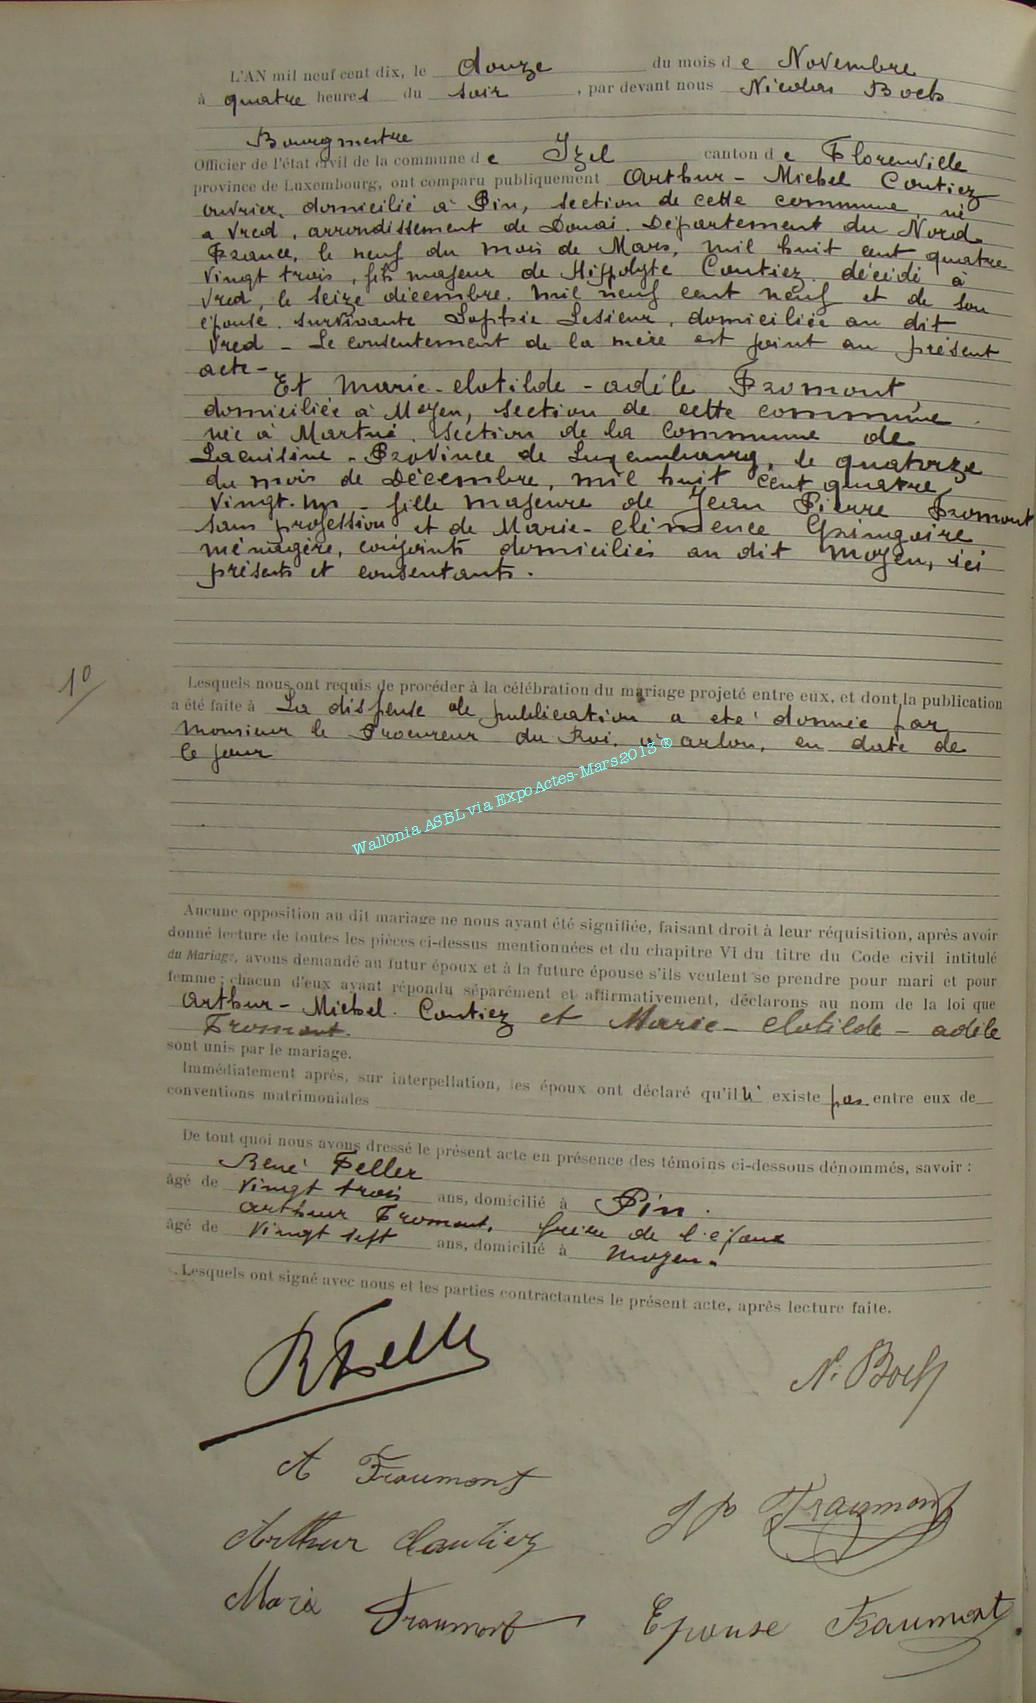 L'AN mil neuf cent dix, le douze du mois de Novembre
à quatre heures du soir, par devant nous Nicolas Boch
Bourgmestre
Officier de l'état civil de la commune de Izel canton de Florenville
province de Luxembourg, ont comparu publiquement Arthur - Michel Coutiez
ouvrier, domicilié à Pin, section de cette commune, né
a Vred, arrondissement de Douai. Département du Nord
France, le neuf du mois de Mars, mil huit cent quatre
vingt trois, fils majeur de Hippolyte Coutiez, décédé à
Vred, le seize décembre. mil neuf cent neuf et de son
épouse survivante Sophie Lesieur, domiciliée au dit
Vred - Le consentement de la mère est joint au présent
acte -
Et Marie - Clotilde - adèle Fromont,
domiciliée à Moyen, section de cette commune
née à Martué. Section de la Commune de
Lacuisine - Province de Luxembourg, le quatorze
du mois de Décembre, mil huit cent quatre
vingt-un - fille majeure de Jean Pierre Fromont
sans profession et de Marie - clémence Gringoire
ménagère, conjoints domiciliés au dit Moyen, ici
présents et consentants.
10
Lesquels nous ont requis de procéder à la célébration du mariage projeté entre eux, et dont la publication
a été faite à La dispense de publication a été donnée par
Monsieur le Procureur du Roi, à arlon, en date de
ce jour
Wallonia ASBL via ExpoActes-Mars2013 ®
Aucune opposition au dit mariage ne nous ayant été signifiée, faisant droit à leur réquisition, après avoir
donné lecture de toutes les pièces ci-dessus mentionnées et du chapitre VI du titre du Code civil intitulé
du Mariage, avons demandé au futur époux et à la future épouse s'ils veulent se prendre pour mari et pour
femme ; chacun d'eux ayant répondu séparément et affirmativement, déclarons au nom de la loi que
Arthur - Michel. Coutiez et Marie - Clotilde - adèle
Fromont.
sont unis par le mariage.
Immédiatement après, sur interpellation, les époux ont déclaré qu'il n' existe pas entre eux de
conventions matrimoniales
De tout quoi nous avons dressé le présent acte en présence des témoins ci-dessous dénommés, savoir :
René Feller
âgé de vingt trois ans, domicilié à Pin.
Arthur Fromont, frère de l'épouse
âgé de vingt sept ans, domicilié à Moyen.
Lesquels ont signé avec nous et les parties contractantes le présent acte, après lecture faite.
R Feller
N. Boch
A Fraumont
J P Fraumont
Arthur Cautiez
Maria Fraumont
Epouse Fraumont.